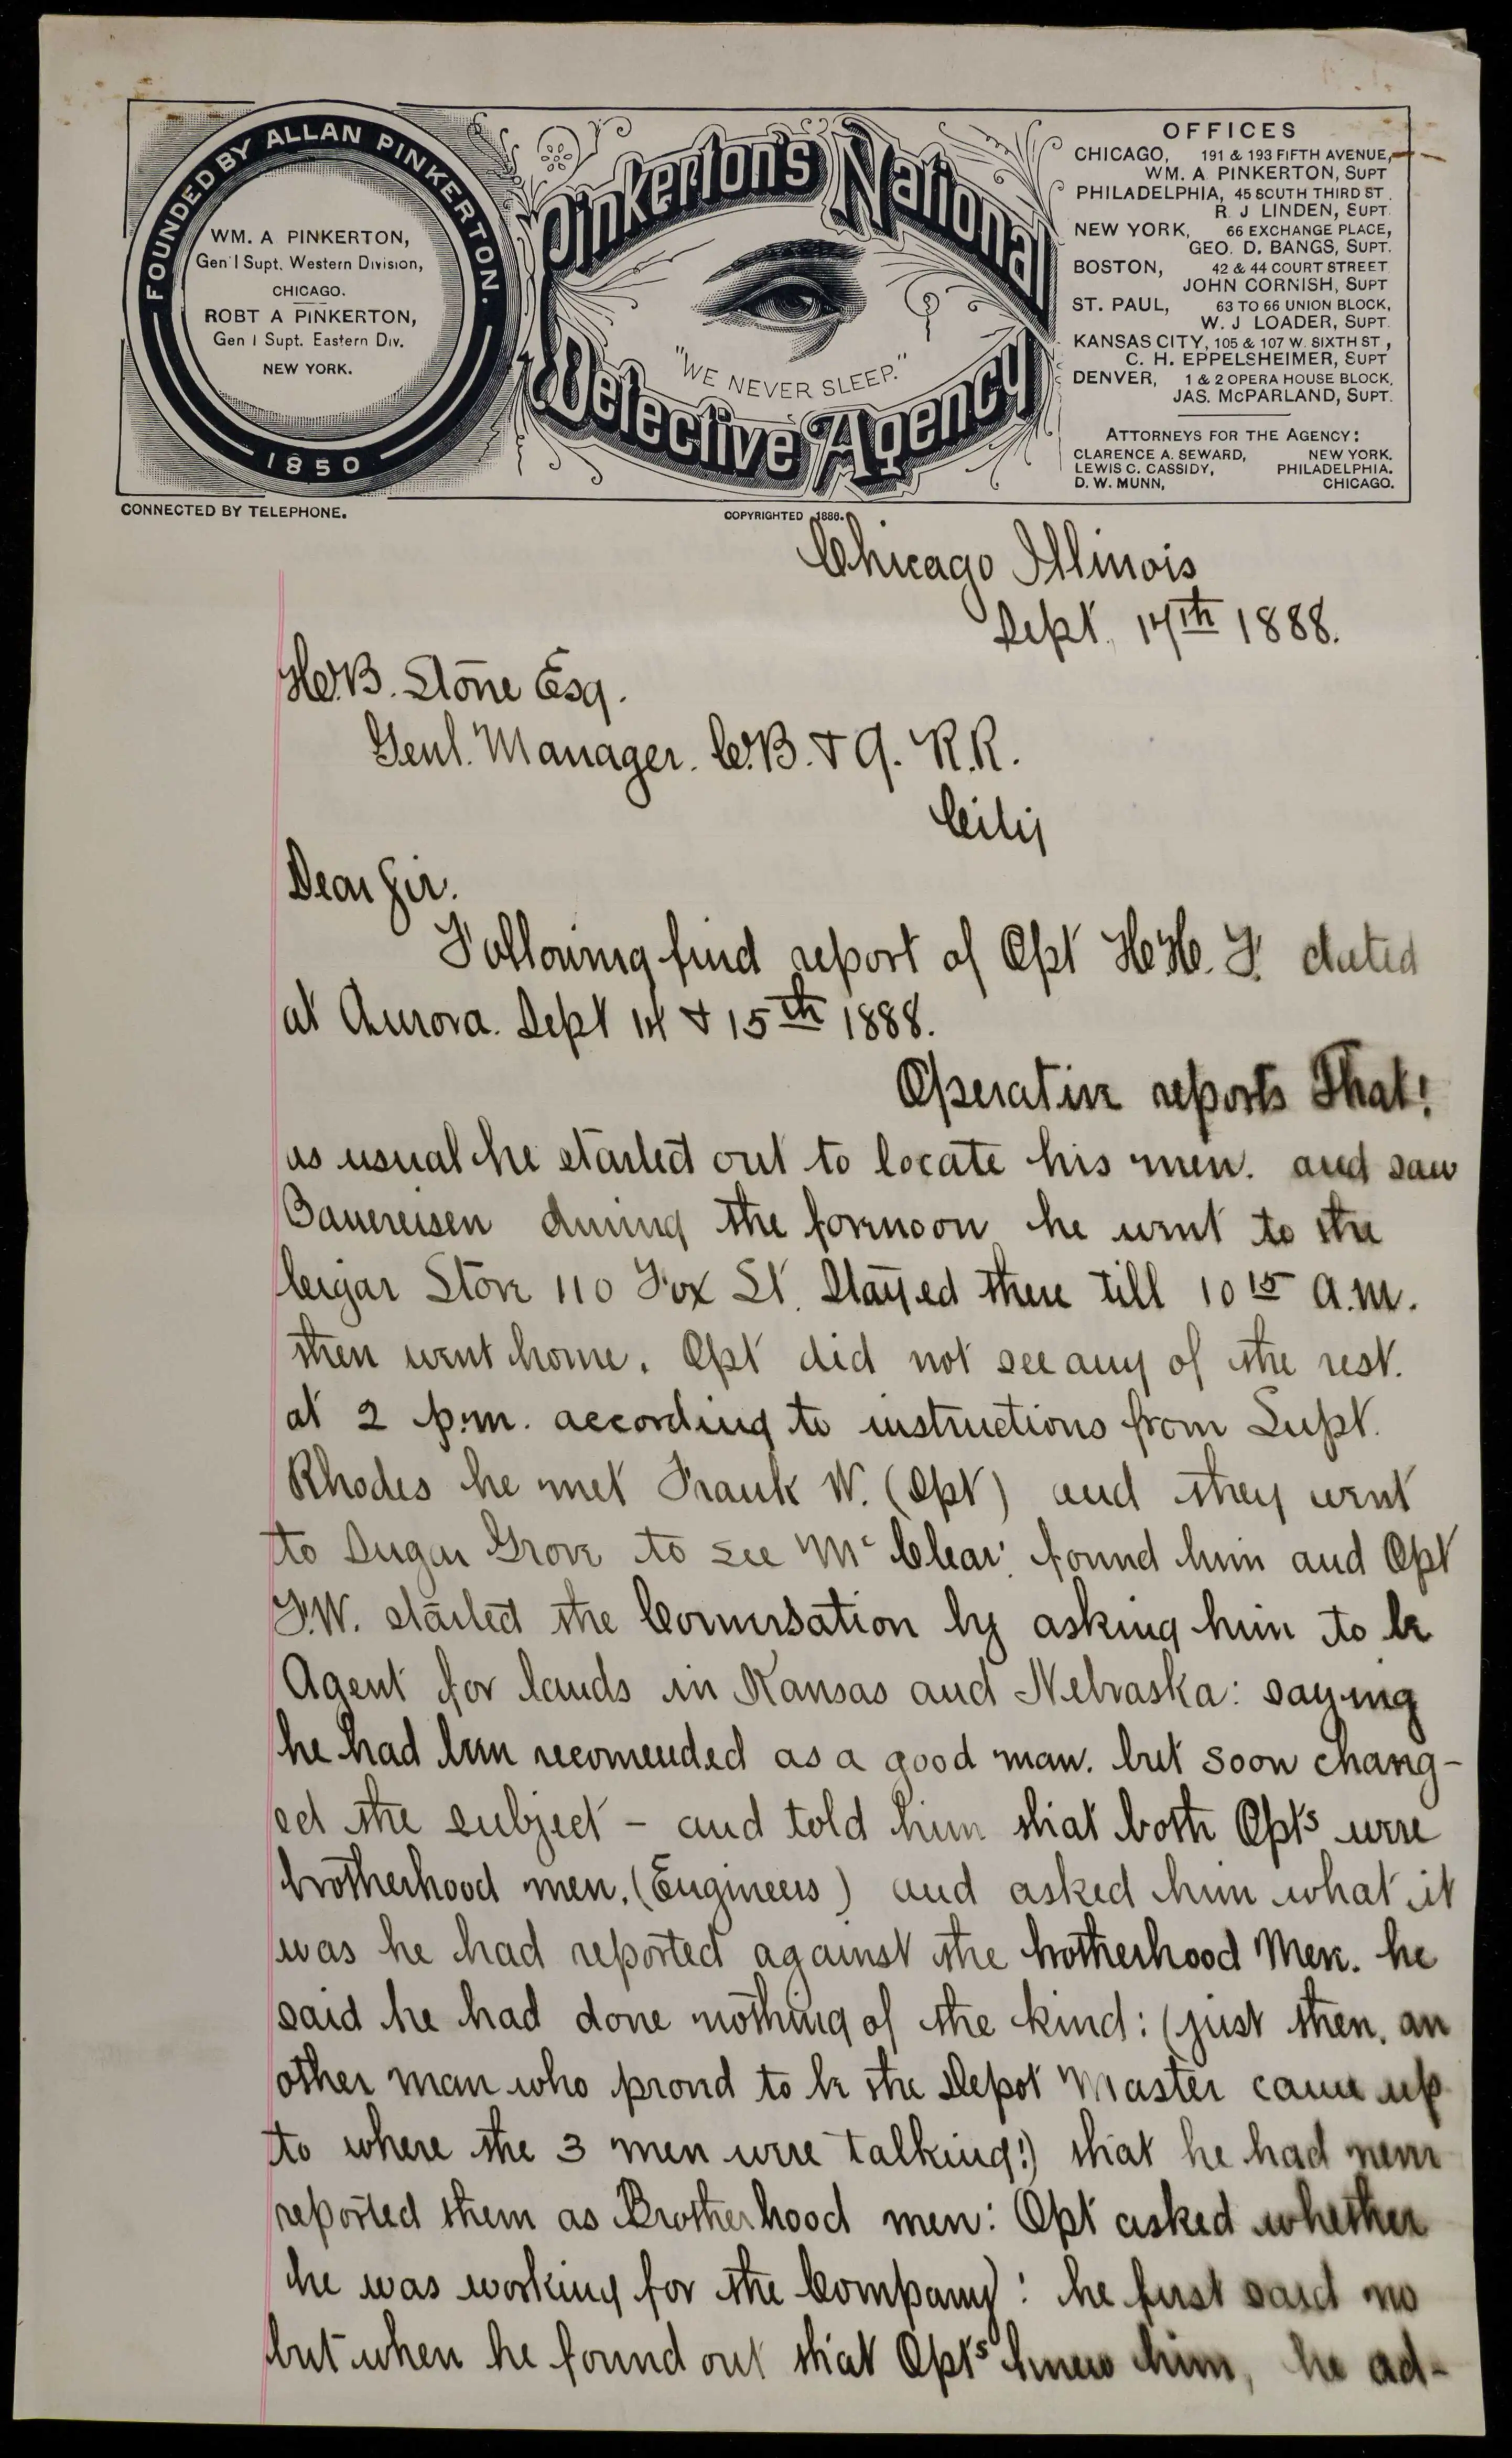 FOUNDED BY ALLAN PINKERTON.
1850
WM. A PINKERTON,
Gen'l Supt. Western Division,
CHICAGO.
ROBT A PINKERTON,
Gen l Supt. Eastern Div.
NEW YORK.
CONNECTED BY TELEPHONE.
Pinkerton's National
"WE NEVER SLEEP."
Detective Agency
COPYRIGHTED 1886.
OFFICES
CHICAGO, 191 & 193 FIFTH AVENUE,
WM. A PINKERTON, SUPT
PHILADELPHIA, 45 SOUTH THIRD ST.
R. J LINDEN, SUPT.
NEW YORK, 66 EXCHANGE PLACE,
GEO. D. BANGS, SUPT.
BOSTON, 42 & 44 COURT STREET
JOHN CORNISH, SUPT
ST. PAUL, 63 TO 66 UNION BLOCK,
W. J LOADER, SUPT.
KANSAS CITY, 105 & 107 W. SIXTH ST,
C. H. EPPELSHEIMER, SUPT
DENVER, 1 & 2 OPERA HOUSE BLOCK,
JAS. McPARLAND, SUPT.
ATTORNEYS FOR THE AGENCY:
CLARENCE A. SEWARD, NEW YORK.
LEWIS C. CASSIDY, PHILADELPHIA.
D. W. MUNN, CHICAGO.
Chicago Illinois
Sept. 17th 1888.
H.B. Stone Esq.
Genl. Manager. C.B. & Q. R.R.
City
Dear Sir.
Following find report of Opt H.H. F. dated
at Aurora. Sept 14 & 15th 1888.
Operative reports That!
as usual he started out to locate his men. and saw
Bauereisen during the forenoon he went to the
Cigar Store 110 Fox St. Stayed there till 10 15 a.m.
then went home. Opt did not see any of the rest.
at 2 p.m. according to instructions from Supt.
Rhodes he met Frank W. (Opt) and they went
to Sugar Grove to see Mc Clear: found him and Opt
F.W. started the Conversation by asking him to be
Agent for lands in Kansas and Nebraska: saying
he had been recomended as a good man. but soon chang-
ed the subject - and told him that both Opts were
brotherhood men. (Engineers) and asked him what it
was he had reported against the brotherhood Men. he
said he had done nothing of the kind: (just then, an
other man who proved to be the Depot Master came up
to where the 3 men were talking!) that he had never
reported them as Brotherhood men: Opt asked whether
he was working for the Company: he first said no
but when he found out that Opts knew him, he ad-